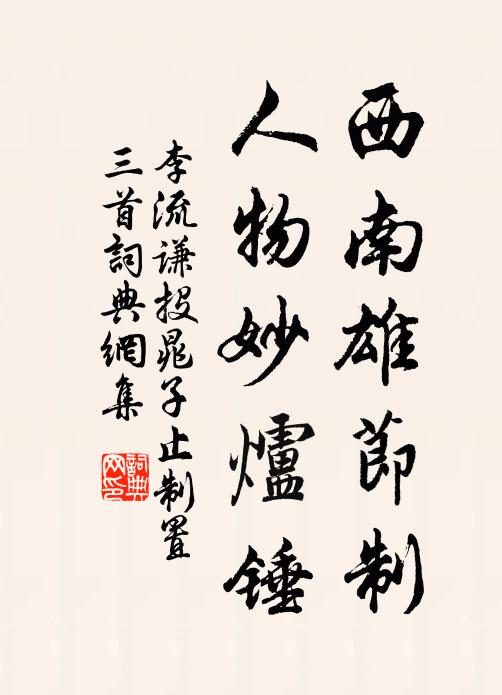 西南雄節制
人物妙爐錘
李流谦投晁子止制置
三首詞典網集
詞典网印